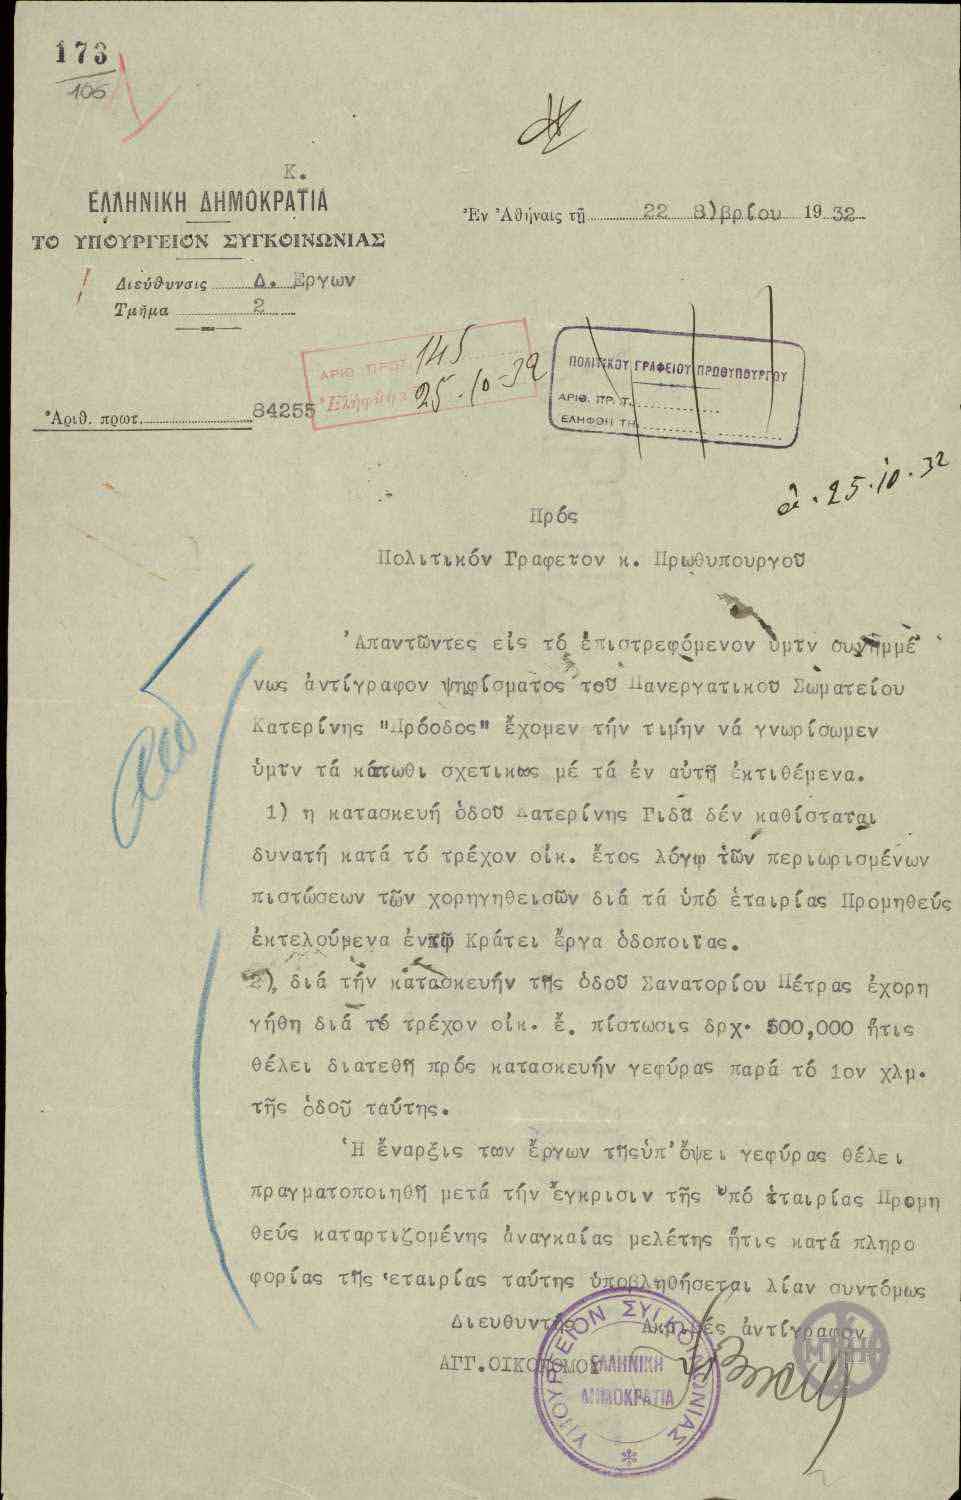 173
106
Κ.
ΕΛΛΗΝΙΚΗ ΔΗΜΟΚΡΑΤΙΑ
ΤΟ ΥΠΟΥΡΓΕΙΟΝ ΣΥΓΚΟΙΝΩΝΙΑΣ
Διεύθυνσις Δ. Εργων
Τμῆμα 2
Ἀριθ. πρωτ. 84255
Ἐν Ἀθήναις τῇ 22 8)βρίου 1932
ΑΡΙΘ. ΠΡΩΤ. 145
Ἐλήφθη 25-10-32
ΠΟΛΙΤΙΚΟΥ ΓΡΑΦΕΙΟΥ ΠΡΩΘΥΠΟΥΡΓΟΥ
ΑΡΙΘ. ΠΡ. Τ.
ΕΛΗΦΘΗ ΤΗ
25.10.32
Πρός
Πολιτικόν Γραφεῖον κ. Πρωθυπουργοῦ
Ἀπαντῶντες εἰς τό ἐπιστρεφόμενον ὑμῖν συνημμέ
νως ἀντίγραφον ψηφίσματος τοῦ Πανεργατικοῦ Σωματείου
Κατερίνης "Πρόοδος" ἔχομεν τήν τιμήν νά γνωρίσωμεν
ὑμῖν τά κάτωθι σχετικως μέ τά ἐν αὐτῇ ἐκτιθέμενα.
1) η κατασκευή ὁδοῦ Κατερίνης Γιδᾶ δέν καθίσταται
δυνατή κατά τό τρέχον οἰκ. ἔτος λόγῳ τῶν περιωρισμένων
πιστώσεων τῶν χορηγηθεισῶν διά τά ὑπό ἑταιρίας Προμηθεύς
ἐκτελούμενα ἐν τῷ Κράτει ἔργα ὁδοποιίας.
2) διά τήν κατασκευήν τῆς ὁδοῦ Σανατορίου Πέτρας ἐχορη
γήθη διά τό τρέχον οἰκ. ἔ. πίστωσις δρχ. 500,000 ἥτις
θέλει διατεθῆ πρός κατασκευήν γεφύρας παρά τό 1ον χλμ.
τῆς ὁδοῦ ταύτης.
Ἡ ἔναρξις των ἔργων τῆς ὑπ' ὄψει γεφύρας θέλει
πραγματοποιηθῆ μετά τήν ἔγκρισιν τῆς ὑπό ἑταιρίας Προμη
θεύς καταρτιζομένης ἀναγκαίας μελέτης ἥτις κατά πληρο
φορίας τῆς ἑταιρίας ταύτης ὑποβληθήσεται λίαν συντόμως
Διευθυντής
Ακριβές ἀντίγραφον
ΑΓΓ.ΟΙΚΟΝΟΜΟΥ
ΥΠΟΥΡΓΕΙΟΝ ΣΥΓΚΟΙΝΩΝΙΑΣ
ΕΛΛΗΝΙΚΗ
ΔΗΜΟΚΡΑΤΙΑ